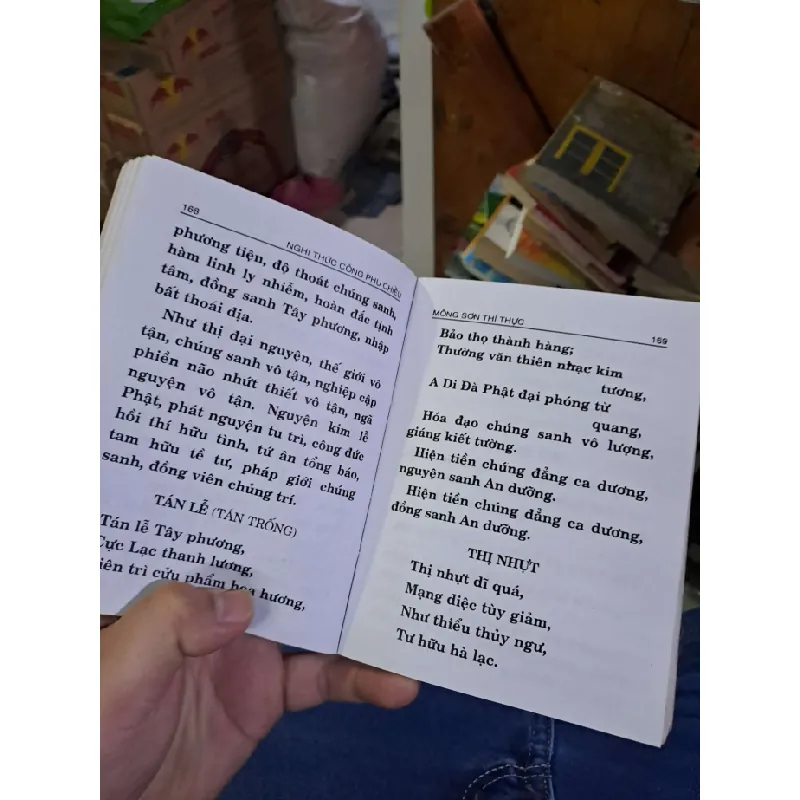 168
NGHI THỨC CÔNG PHU CHIỀU
phương tiện, độ thoát chúng sanh,
hàm linh ly nhiễm, hoàn đắc tịnh
tâm, đồng sanh Tây phương, nhập
bất thoái địa.
Như thị đại nguyện, thế giới vô
tận, chúng sanh vô tận, nghiệp cập
phiền não nhứt thiết vô tận, ngã
nguyện vô tận. Nguyện kim lễ
Phật, phát nguyện tu trì, công đức
hồi thí hữu tình, tứ ân tổng báo,
tam hữu tề tư, pháp giới chúng
sanh, đồng viên chủng trí.
TÁN LỄ (TÁN TRỐNG)
Tán lễ Tây phương,
Cực Lạc thanh lương,
iên trì cửu phẩm hoa hương,
MÔNG SƠN THÍ THỰC
169
Bảo thọ thành hàng;
Thường văn thiên nhạc kim
tương,
A Di Đà Phật đại phóng từ
quang,
Hóa đạo chúng sanh vô lượng,
giáng kiết tường.
Hiện tiền chúng đẳng ca dương,
nguyện sanh An dưỡng.
Hiện tiền chúng đẳng ca dương,
đồng sanh An dưỡng.
THỊ NHỰT
Thị nhựt dĩ quá,
Mạng diệc tùy giảm,
Như thiểu thủy ngư,
Tư hữu hà lạc.